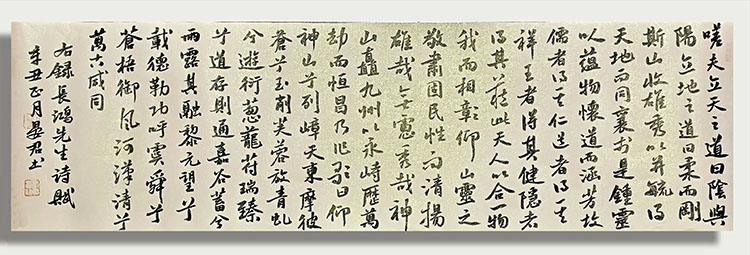 嗟夫立天之道曰陰與
陽立地之道曰柔而剛
斯山收雄秀以并毓得
天地而同襄於是鍾靈
以蘊物懷道而涵芳故
儒者得其仁道者得其
祥王者得其健隱者
得其藏此天人以合一物
我而相彰仰山靈之
敬肅固民性而清揚
雄哉憲秀哉神
山矗九州以永峙歷萬
劫而恒昌乃作歌曰仰
神山兮列嶂天東摩彼
蒼兮玉削芙蓉放青虬
兮遊衍蔥蘢荷瑞臻
兮道存則通嘉谷蓄兮
雨露其融黎元望兮
載德勤功呼虞舜兮
蒼梧御風河漢清兮
萬古咸同
右録長鴻先生詩賦
辛丑正月晏君書